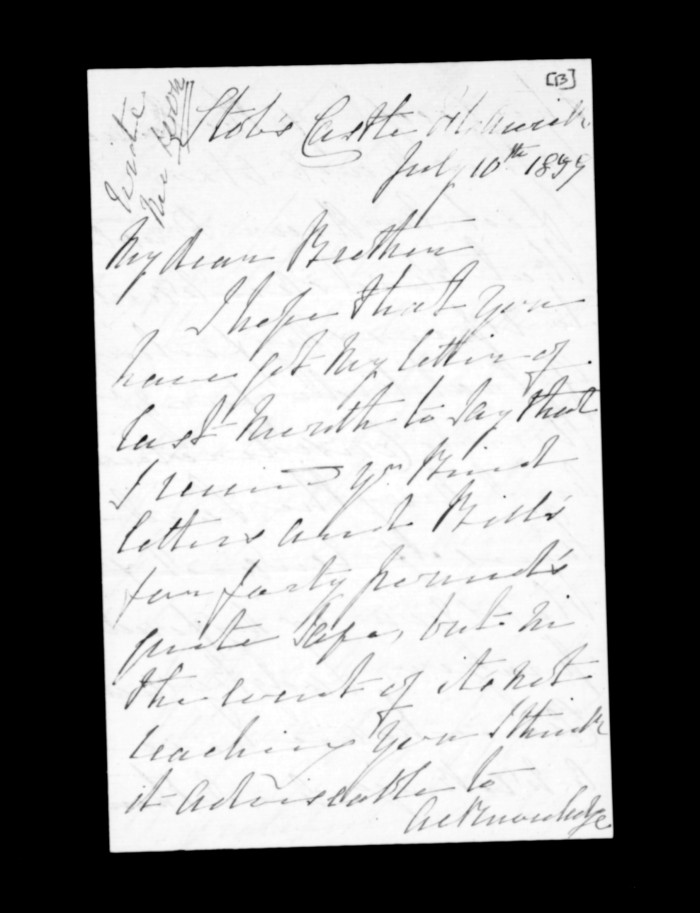 [13]
Write
Stobs Castle Hawick
July 10th 1899
My dear Brother
I hope that you
have got my letter of
last month to say that
I received yr. kind
letters and Bill's
for forty pound's
quite safe, but in
the event of its not
reaching you I think
it adviseable to
acknowledge